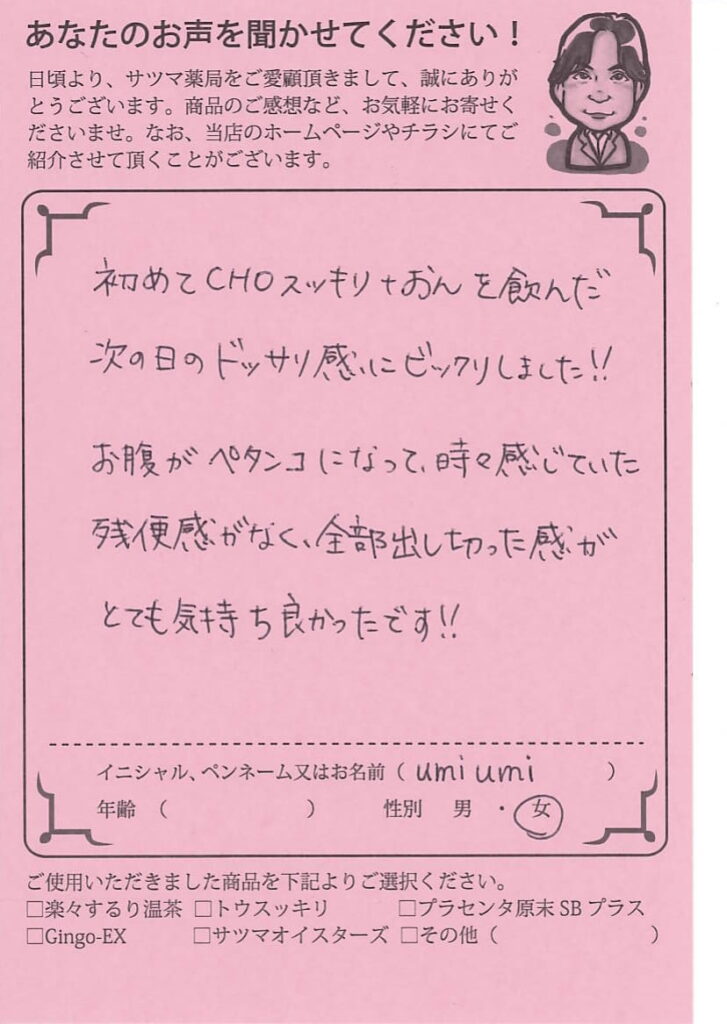 あなたのお声を聞かせてください！
日頃より、サツマ薬局をご愛顧頂きまして、誠にありが
とうございます。商品のご感想など、お気軽にお寄せく
ださいませ。なお、当店のホームページやチラシにてご
紹介させて頂くことがございます。
初めてCHOスッキリ+おんを飲んだ
次の日のドッサリ感にビックリしました!!
お腹がペタンコになって、時々感じていた
残便感がなく、全部出し切った感が
とても気持ち良かったです!!
イニシャル、ペンネーム又はお名前（ umi umi ）
年齢 （ ） 性別 男 ・ 女
ご使用いただきました商品を下記よりご選択ください。
□楽々するり温茶 □トウスッキリ □プラセンタ原末SBプラス
□Gingo-EX □サツマオイスターズ □その他（ ）